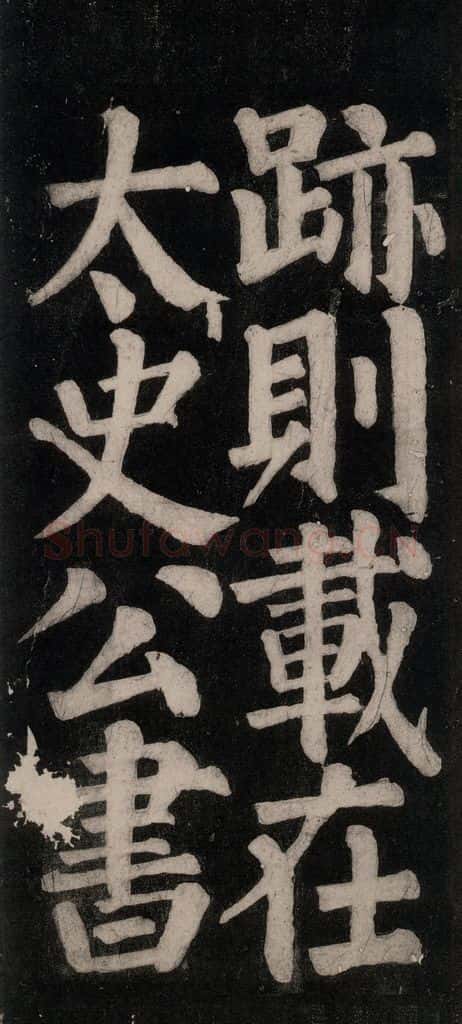 跡則載在
太史公書
shufawang.CN